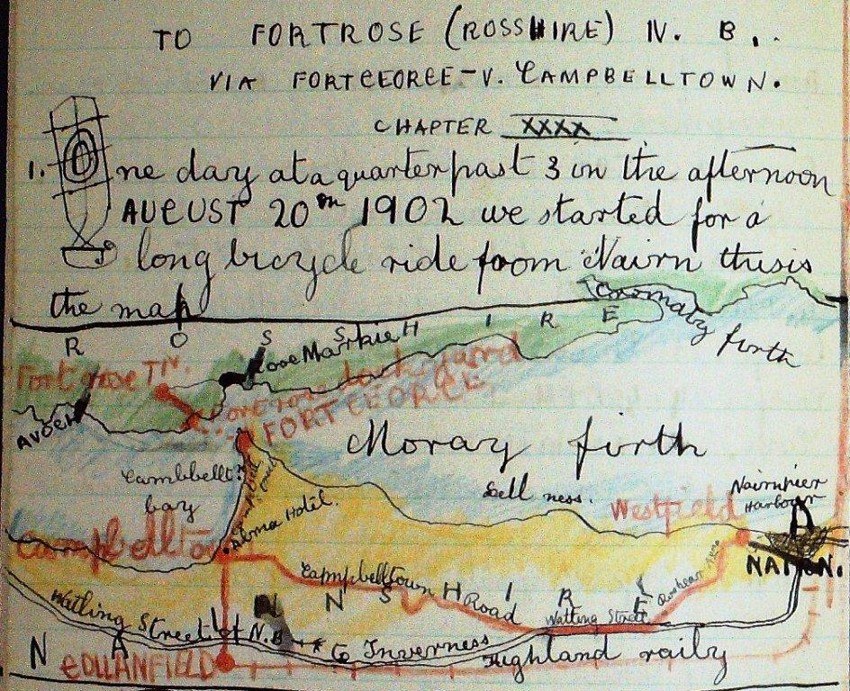 TO FORTROSE (ROSSHIRE) N. B.
VIA FORTGEORGE-V. CAMPBELLTOWN.
CHAPTER XXXX
1. One day at a quarter past 3 in the afternoon
AUGUST 20TH 1902 we started for a
long bicycle ride from Nairn this is
the map
Cromaty firth
R O S S H I R E
Rose Markie
Fortrose TN.
Fortrose dockyard
FORTGEORGE
AVOCH
Moray firth
Cambbellt.
bay
Sell ness.
Westfield
Nairn pier
Harbour
Campbellton
Alma Hotel.
NAIRN.
Campbelltown Road
N A I R N S H I R E
Watling Street
Watling Street of N.B
to Inverness
Highland raily
GOLLANFIELD